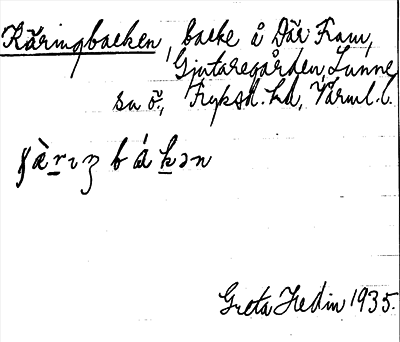 Käringbacken, backe å Där Fram,
Gjutaregården, Lunne
sn ö., Fryksd. hd, Värml. l.
bákən
Greta Hedin 1935.